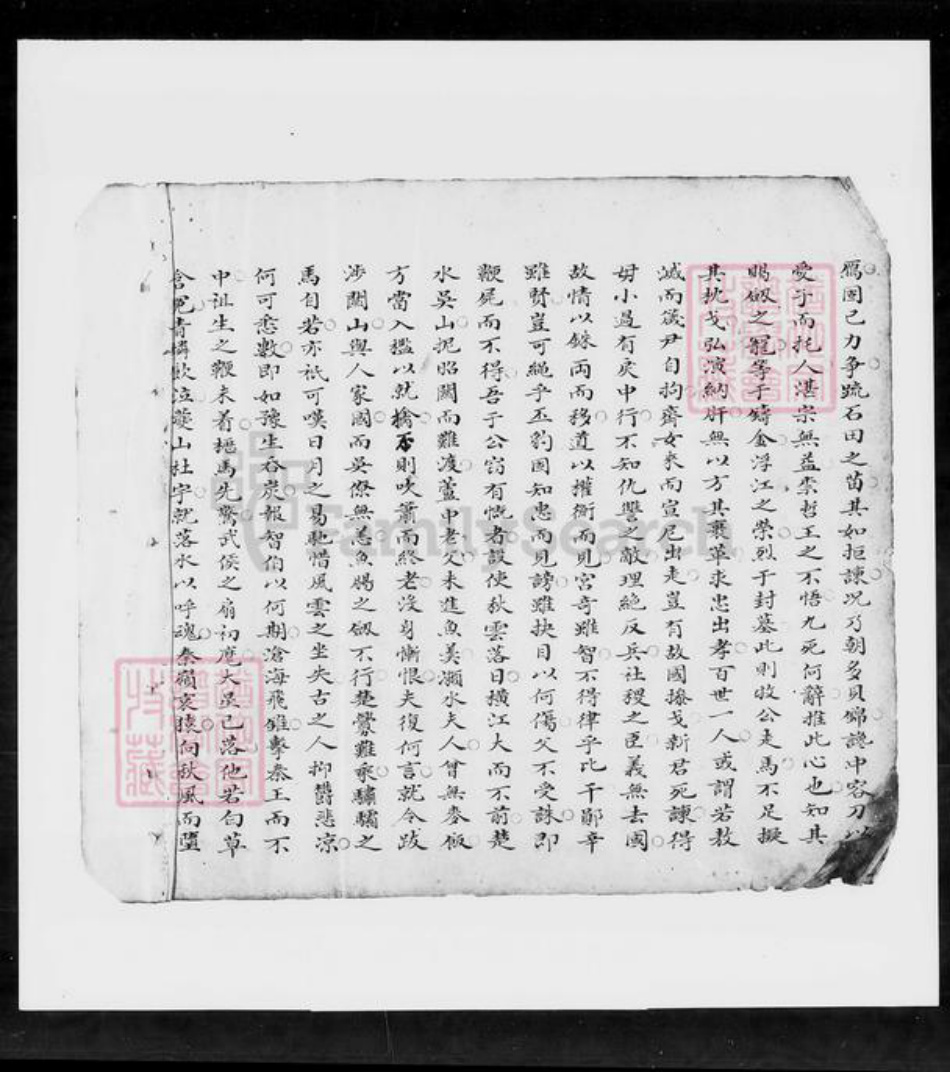 鴈固已力争疏石田之苗其如拒諫况乃朝多貝錦讒中容刀以
愛子而托人湛宗無益柰哲王之不悟九死何辭推此心也知其
賜劔之寵等于鑄金浮江之榮烈于封墓此則牧公走馬不足擬
其枕戈弘演納肝無以方其褁革求忠出孝百世一人或謂若敖
滅而箴尹自拘齊女来而宣尼出走豈有故國操戈新君死諫得
毋小過有戾中行不知仇讐之敵理絶反兵社稷之臣義無去國
故情以銖兩而移道以權衡而見宮奇雖智不得律乎比干鄭辛
雖賢豈可繩乎丕豹固知忠而見謗雖抉目以何傷父不受誅即
鞭屍而不得吾于公窃有慨者設使秋雲落日横江大而不前楚
水吳山扼昭關而難渡蘆中老父未進魚羙瀨水夫人曾無麥飯
方當入檻以就擒不則吹簫而終老没身慚恨夫復何言就令跋
渉關山與人家國而吳僚無恙魚膓之劔不行楚釁難乘驌驦之
馬自若亦祇可嘆日月之易馳惜風雲之坐失古之人抑欝悲凉
何可悉數即如豫生吞炭報智伯以何期滄海飛錐擊秦王而不
中祖生之鞭未着搥馬先驚武侯之扇初麾大星已落他若白草
含寃青燐飲泣蔓山杜宇就落水以呼魂秦嶺哀猿向秋風而墮
FamilySearch